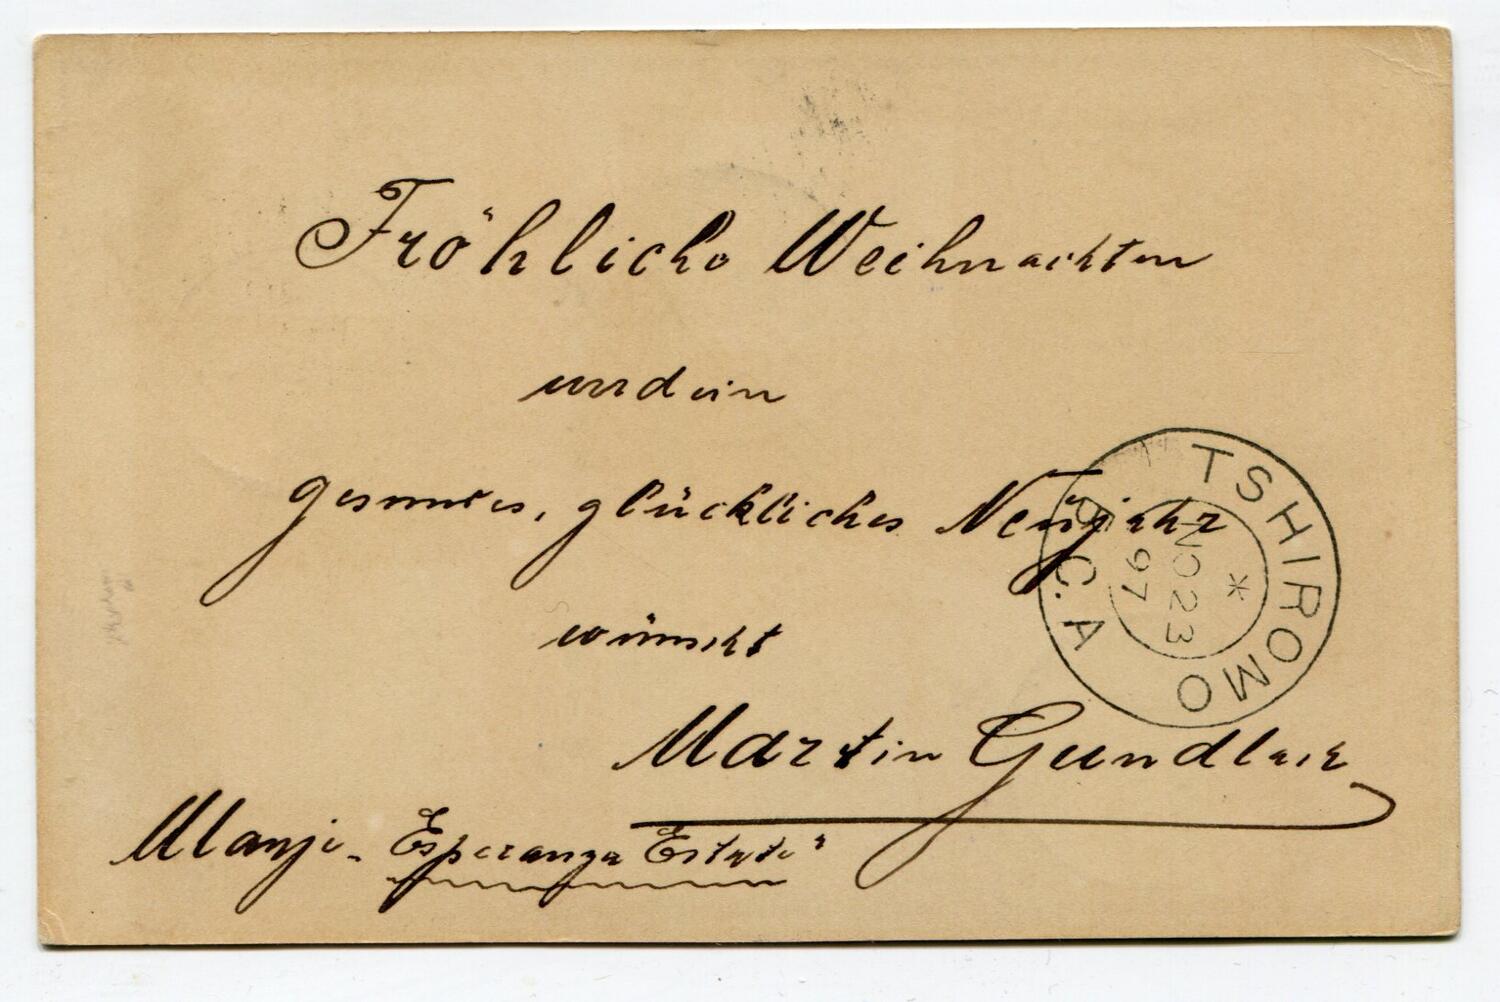 Fröhliche Weihnachten
und ein
gesundes, glückliches Neujahr
wünscht
Martin Gundlach
Mlanje - Esperanza Estate"
TSHIROMO
B.C.A
*
NO 23
97